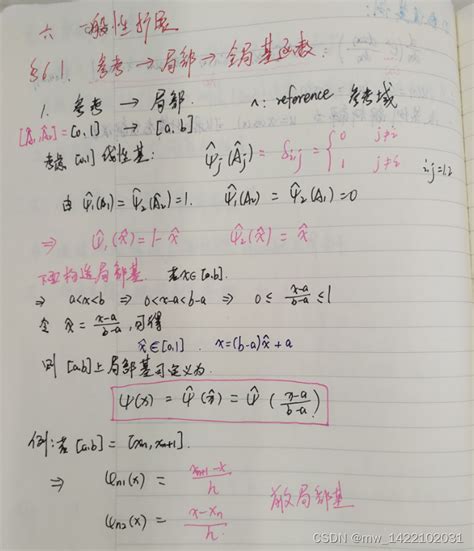 六 一般性扩展
§6.1. 参考 → 局部 → 全局基函数:
1. 参考 → 局部. ∧: reference 参考域
[Â₁, Â₂] = [0,1] → [a,b]
考虑 [0,1] 线性基: ψ̂j(Âj) = δij = { 0 j≠i
1 j≠i i,j=1,2
由 ψ̂₁(A₁) = ψ̂₂(A₂) = 1. ψ̂₁(A₂) = ψ̂₂(A₁) = 0
⇒ ψ̂₁(x̂) = 1-x̂ ψ̂₂(x̂) = x̂
下面构造局部基. 若x∈[a,b].
⇒ a<x<b ⇒ 0<x-a<b-a ⇒ 0≤ (x-a)/(b-a) ≤1
令 x̂ = (x-a)/(b-a), 可得
x̂∈[0,1] . x=(b-a)x̂+a
则 [a,b]上局部基可定义为.
ψ(x) = ψ̂(x̂) = ψ̂((x-a)/(b-a))
例: 若[a,b] = [xn, xn+1].
⇒ φn1(x) = (xn+1-x)/h
φn2(x) = (x-xn)/h. 局部基
CSDN @mw_1422102031